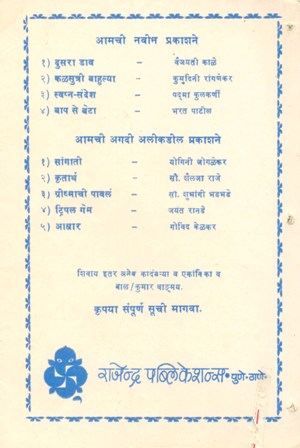 आमची नवीन प्रकाशने
१) दुसरा डाव - वैजयंती काळे
२) कळसुत्री बाहुल्या - कुमुदिनी रांगणेकर
३) स्वप्न-संदेश - पद्मा कुलकर्णी
४) बाप से बेटा - भरत पाटील
आमची अगदी अलिकडील प्रकाशने
१) सांगाती - योगिनी जोगळेकर
२) कृतार्थ - सौ. शैलजा राजे
३) ग्रीष्माची पावलं - सौ. शुभांगी भडभडे
४) ट्रिपल गेम - जयंत रानडे
५) आधार - गोविंद बेळकर
शिवाय इतर अनेक कादंबऱ्या व एकांकिका व
बाल/कुमार वाङ्मय.
कृपया संपूर्ण सूची मागवा.
राजेन्द्र पब्लिकेशन्स. पुणे-ठाणे.